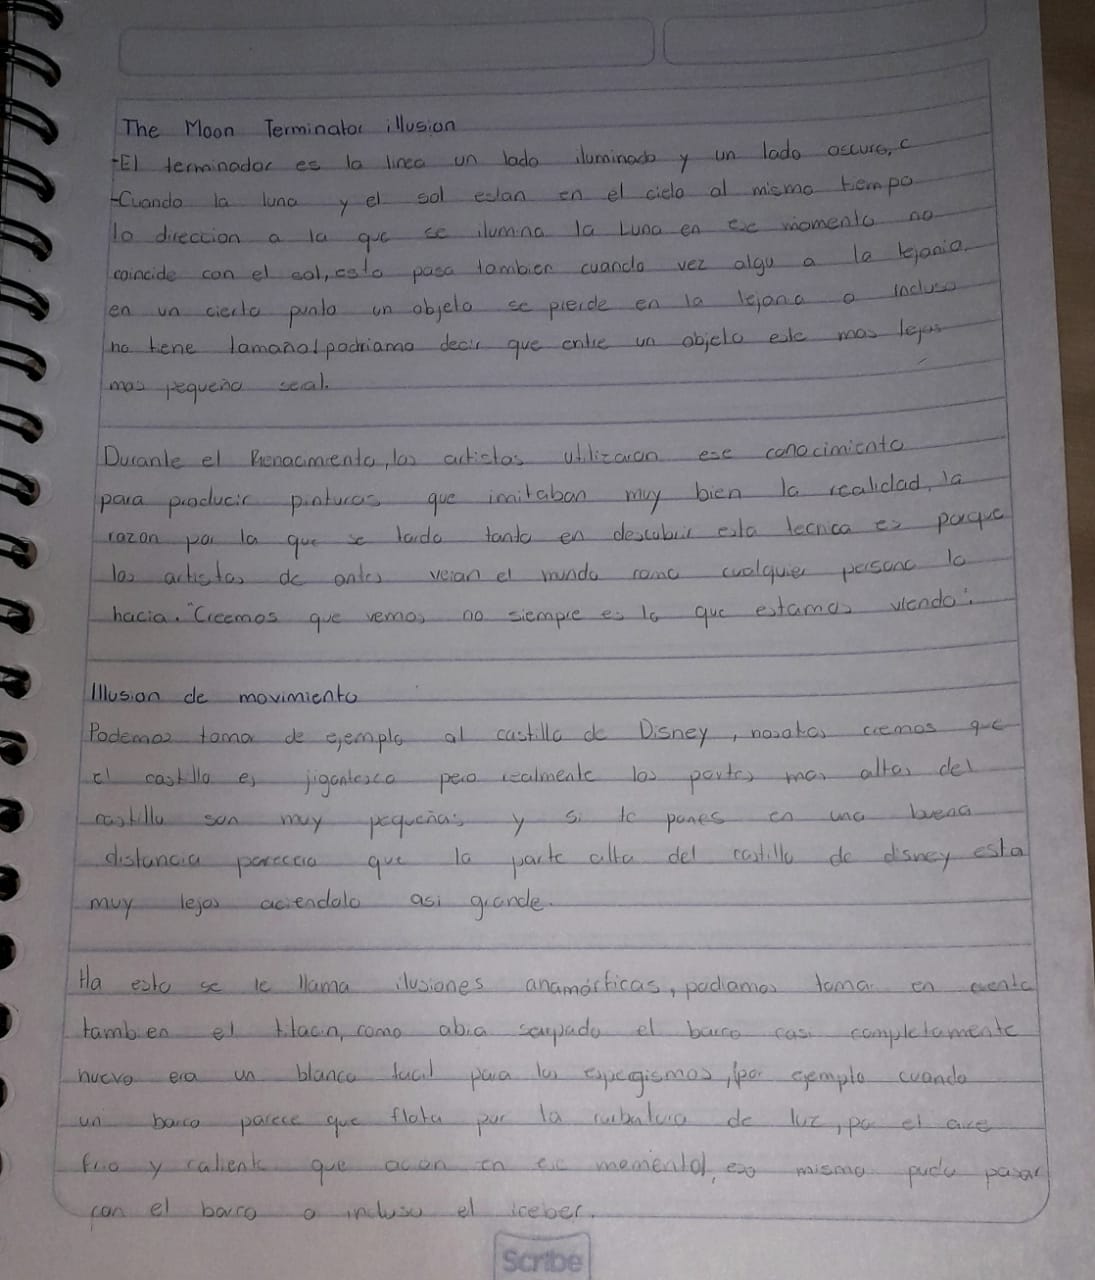 The Moon Terminator illusion
-El terminador es la linea un lado iluminado y un lado oscuro, c
-Cuando la luna y el sol estan en el cielo al mismo tiempo
la direccion a la que se ilumina la Luna en ese momento no
coincide con el sol, esto pasa tambien cuando vez algo a la lejania.
en un cierto punto un objeto se pierde en la lejana o incluso
no tiene tamaño(podriamo decir que entre un objeto este mas lejos
mas pequeño sera).
Durante el Renacimiento, los artistas utilizaron ese conocimiento
para producir pinturas que imitaban muy bien la realidad, la
razon por la que se tardo tanto en descubrir esta tecnica es porque
los artistas de antes veian el mundo como cualquier persona lo
hacia. "Creemos que vemos no siempre es lo que estamos viendo".
Illusion de movimiento
Podemos tomar de ejemplo al castillo de Disney, nosotros cremos que
el castillo es jigantesco pero realmente las partes mas altas del
castillo son muy pequeñas y si te pones en una buena
distancia pareceria que la parte alta del castillo de disney esta
muy lejos aciendolo asi grande.
Ha esto se le llama ilusiones anamórficas, podiamos tomar en cuenta
tambien el titacin, como abia sarpado el barco casi completamente
nuevo era un blanco facil para los espegismos, (por ejemplo cuando
un barco parece que flota por la curbatura de luz, por el aire
frio y caliente que acian en ese momento), eso mismo pudo pasar
con el barco o incluso el iceber.
Scribe